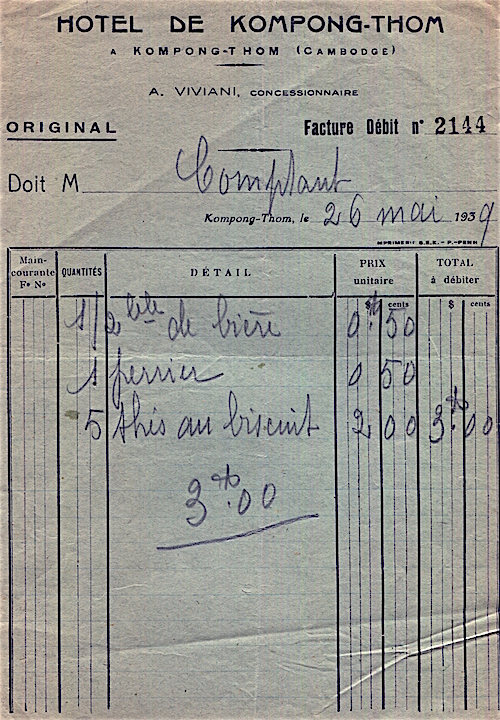 HOTEL DE KOMPONG-THOM
A KOMPONG-THOM (CAMBODGE)
A. VIVIANI, CONCESSIONNAIRE
ORIGINAL
Facture Débit n° 2144
Doit M Comptant
Kompong-Thom, le 26 mai 1939
IMPRIMERIE S.E.K. - P.-PENH
Main-courante Fo No QUANTITÉS DÉTAIL PRIX unitaire TOTAL à débiter
$ cents $ cents
1/2 btle de bière 0$ 50
1 perrier 0 50
5 thés au biscuit 2 00 3$ 00
3$00